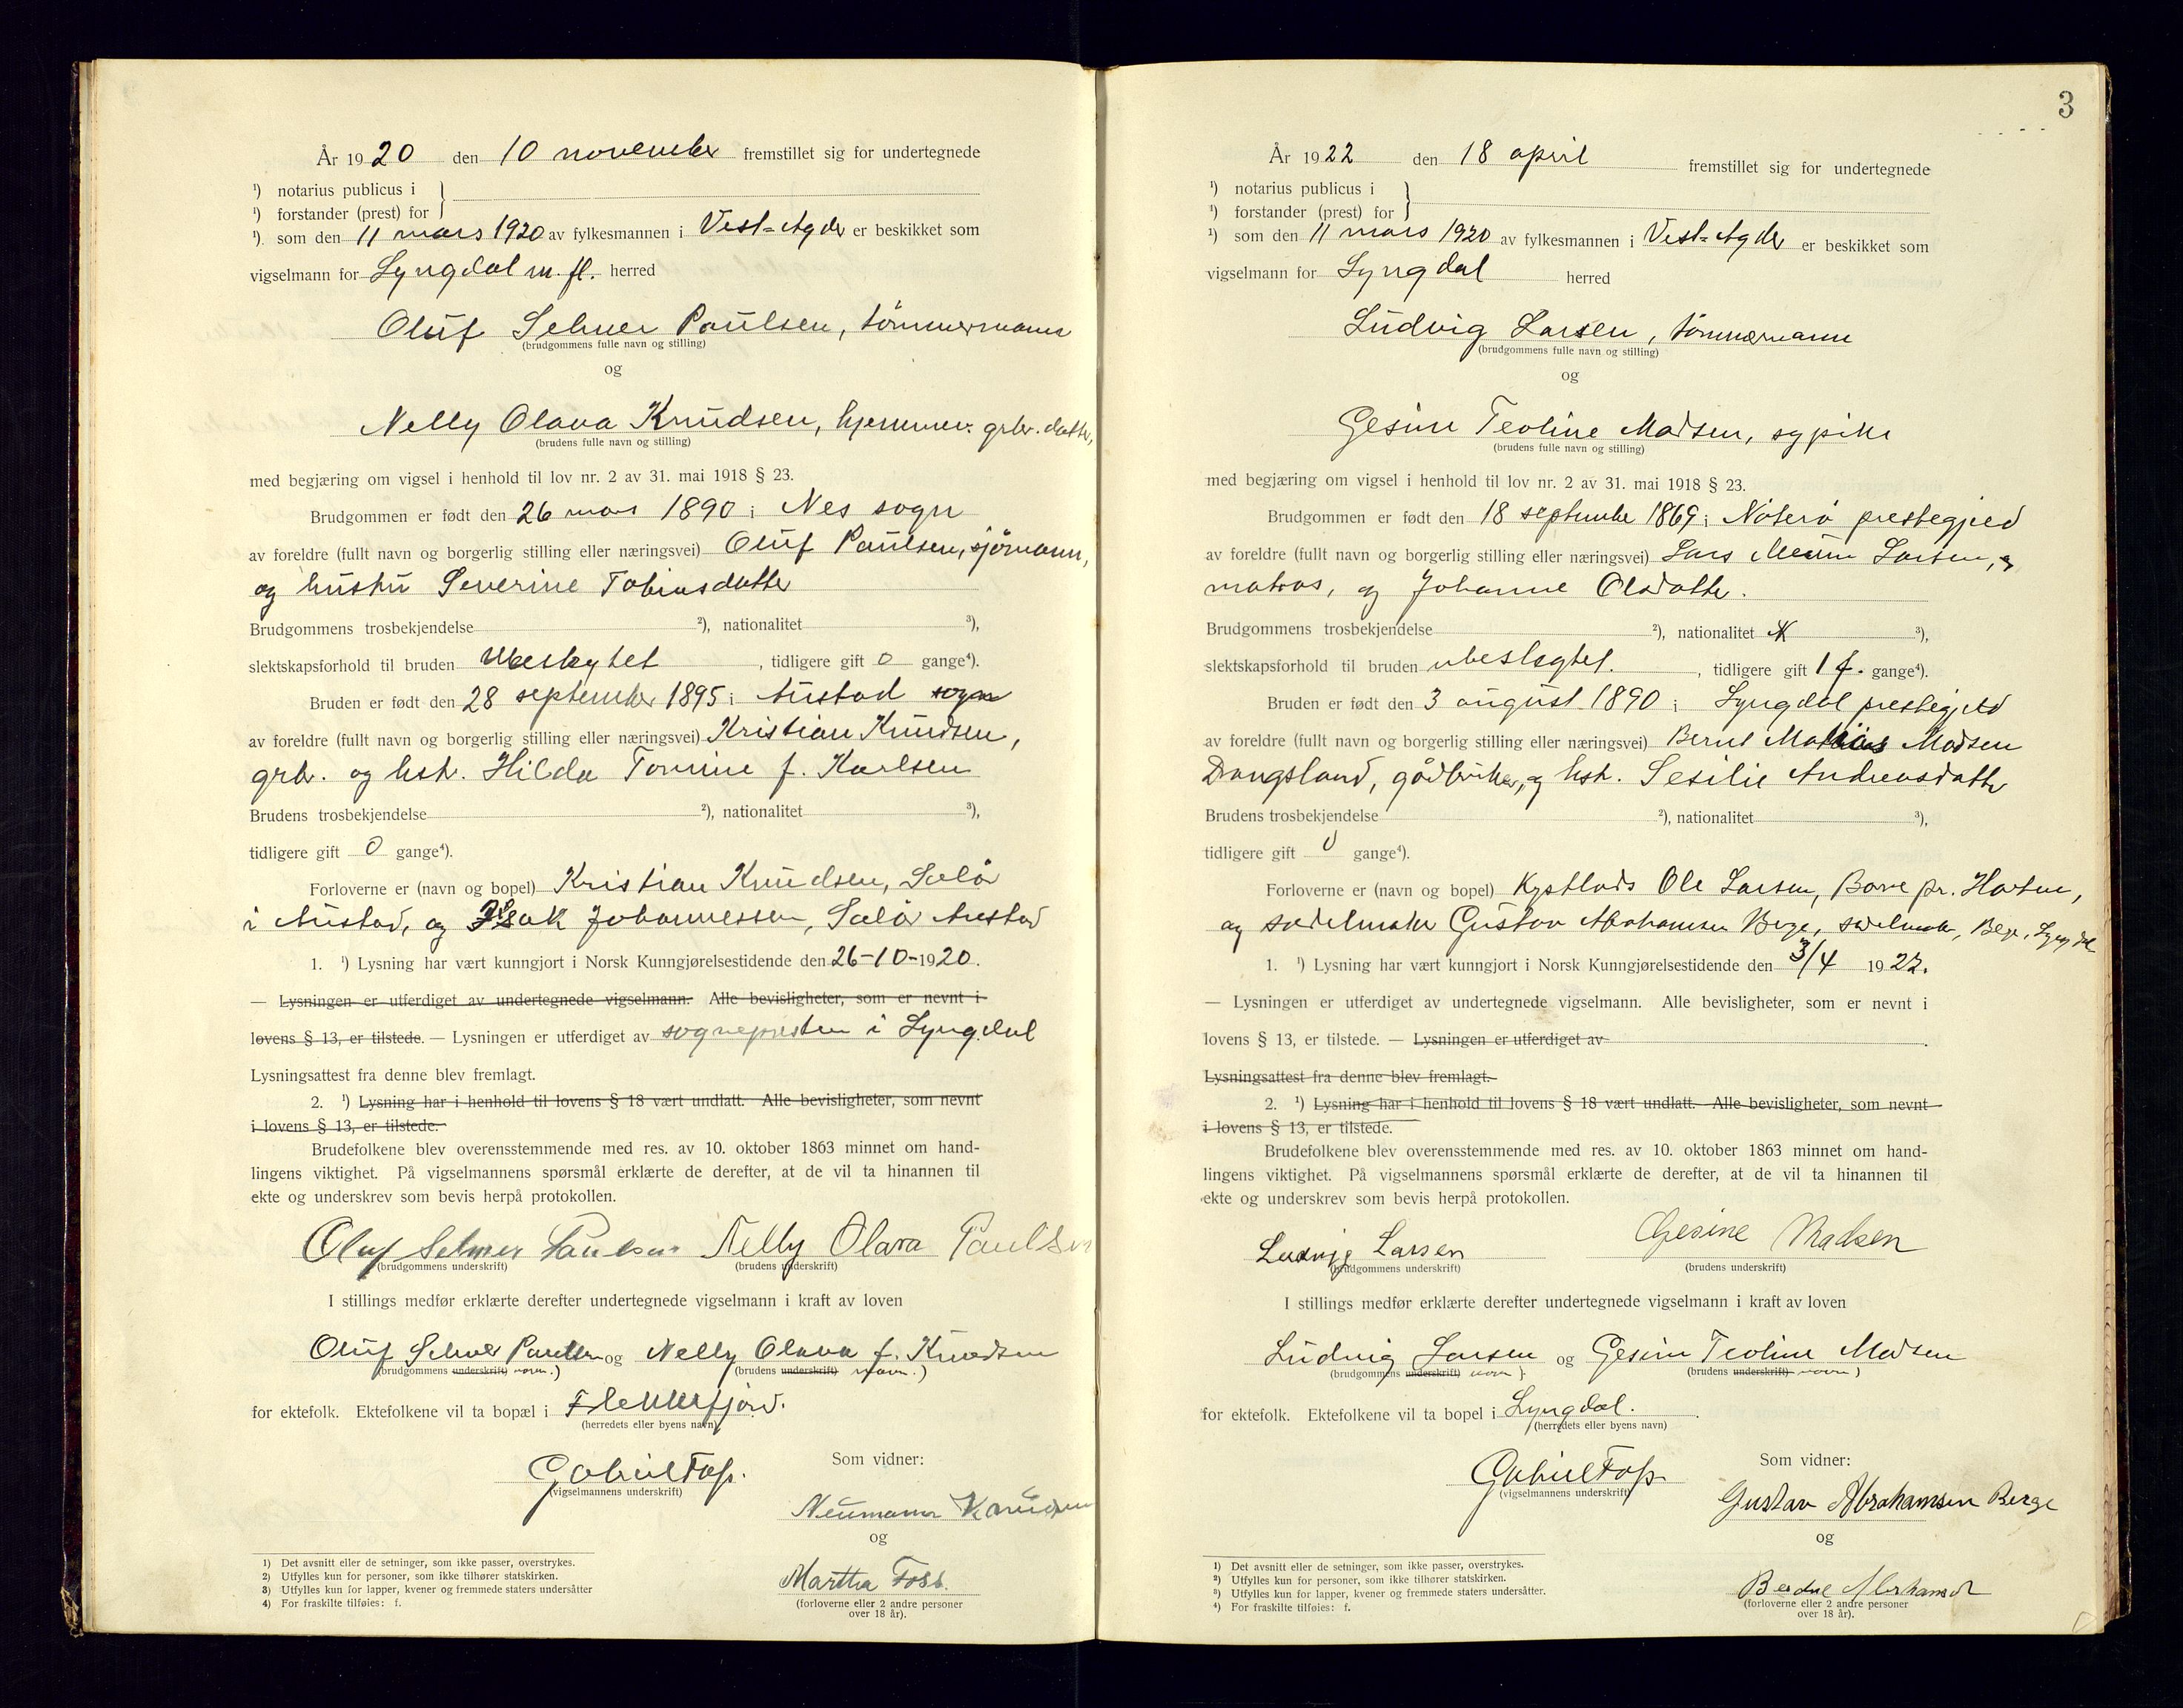 År 1920 den 10 november fremstillet sig for undertegnede
¹) notarius publicus i }
¹) forstander (prest) for
¹). som den 11 mars 1920 av fylkesmannen i Vest-Agder er beskikket som
vigselmann for Lyngdal m. fl. herred
Oluf Selmer Paulsen, tömmermann
(brudgommens fulle navn og stilling)
og
Nelly Olava Knudsen, hjemmev. grbr. datter,
(brudens fulle navn og stilling)
med begjæring om vigsel i henhold til lov nr. 2 av 31. mai 1918 § 23.
Brudgommen er født den 26 mars 1890 i Nes sogn
av foreldre (fullt navn og borgerlig stilling eller næringsvei) Oluf Paulsen, sjömann,
og hustru Severine Tobiasdatter
Brudgommens trosbekjendelse ²), nationalitet ³),
slektskapsforhold til bruden Ubeslegtet, tidligere gift 0 gange⁴).
Bruden er født den 28 september 1895 i Austad sogn
av foreldre (fullt navn og borgerlig stilling eller næringsvei) Kristian Knudsen,
grbr. og hstr. Hilda Tomine f. Karlsen
Brudens trosbekjendelse ²), nationalitet ³),
tidligere gift 0 gange⁴).
Forloverne er (navn og bopel) Kristian Knudsen, Salö
i Austad, og Isak Johannessen, Salö Austad
1. ¹) Lysning har vært kunngjort i Norsk Kunngjørelsestidende den 26-10-1920.
— Lysningen er utferdiget av undertegnede vigselmann. Alle bevisligheter, som er nevnt i
lovens § 13, er tilstede. — Lysningen er utferdiget av sognepresten i Lyngdal
Lysningsattest fra denne blev fremlagt.
2. ¹) Lysning har i henhold til lovens § 18 vært undlatt. Alle bevisligheter, som nevnt
i lovens § 13, er tilstede.
Brudefolkene blev overensstemmende med res. av 10. oktober 1863 minnet om hand-
lingens viktighet. På vigselmannens spørsmål erklærte de derefter, at de vil ta hinannen til
ekte og underskrev som bevis herpå protokollen.
Oluf Selmer Paulsen Nelly Olava Paulsen
(brudgommens underskrift) (brudens underskrift)
I stillings medfør erklærte derefter undertegnede vigselmann i kraft av loven
Oluf Selmer Paulsen og Nelly Olava f. Knudsen
(brudgommens underskrift) navn.) (brudens underskrift) navn.)
for ektefolk. Ektefolkene vil ta bopæl i Flekkefjord.
(herredets eller byens navn)
Gabriel Foss.
(vigselmannens underskrift)
Som vidner:
Neumann Knudsen
og
Martha Foss.
(forloverne eller 2 andre personer
over 18 år).
1) Det avsnitt eller de setninger, som ikke passer, overstrykes.
2) Utfylles kun for personer, som ikke tilhører statskirken.
3) Utfylles kun for lapper, kvener og fremmede staters undersåtter
4) For fraskilte tilføies: f.
3
År 1922 den 18 april fremstillet sig for undertegnede
¹) notarius publicus i }
¹) forstander (prest) for
¹) som den 11 mars 1920 av fylkesmannen i Vest-Agder er beskikket som
vigselmann for Lyngdal herred
Ludvig Larsen, tömmermann
(brudgommens fulle navn og stilling)
og
Gesine Teoline Madsen, sypike
(brudens fulle navn og stilling)
med begjæring om vigsel i henhold til lov nr. 2 av 31. mai 1918 § 23.
Brudgommen er født den 18 september 1869 i Nøterö prestegjeld
av foreldre (fullt navn og borgerlig stilling eller næringsvei) Lars Larsen,
matros, og Johanne Olsdatter.
Brudgommens trosbekjendelse ²), nationalitet ³),
slektskapsforhold til bruden ubeslegtet., tidligere gift 1 f. gange⁴).
Bruden er født den 3 august 1890 i Lyngdal prestegjeld
av foreldre (fullt navn og borgerlig stilling eller næringsvei) Bernt Mathias Madsen
Drangsland, gårdbruker, og hstr. Sesilie Andreasdatter
Brudens trosbekjendelse ²), nationalitet ³),
tidligere gift 0 gange⁴).
Forloverne er (navn og bopel) Kystlods Ole Larsen, Borre pr. Horten,
og sadelmaker Gustav Abrahamsen Berge, sadelmaker, Berge, Lyngdal
1. ¹) Lysning har vært kunngjort i Norsk Kunngjørelsestidende den 3/4 1922.
— Lysningen er utferdiget av undertegnede vigselmann. Alle bevisligheter, som er nevnt i
lovens § 13, er tilstede. — Lysningen er utferdiget av .
Lysningsattest fra denne blev fremlagt.
2. ¹) Lysning har i henhold til lovens § 18 vært undlatt. Alle bevisligheter, som nevnt
i lovens § 13, er tilstede.
Brudefolkene blev overensstemmende med res. av 10. oktober 1863 minnet om hand-
lingens viktighet. På vigselmannens spørsmål erklærte de derefter, at de vil ta hinannen til
ekte og underskrev som bevis herpå protokollen.
Ludvig Larsen Gesine Madsen
(brudgommens underskrift) (brudens underskrift)
I stillings medfør erklærte derefter undertegnede vigselmann i kraft av loven
Ludvig Larsen og Gesine Teoline Madsen
(brudgommens underskrift) navn). (brudens underskrift) navn)
for ektefolk. Ektefolkene vil ta bopel i Lyngdal.
(herredets eller byens navn)
Gabriel Foss
(vigselmannens underskrift)
Som vidner:
Gustav Abrahamsen Berge
og
(forloverne eller 2 andre personer
over 18 år).
¹) Det avsnitt eller de setninger, som ikke passer, overstrykes.
²) Utfylles kun for personer, som ikke tilhører statskirken.
³) Utfylles kun for lapper, kvener og fremmede staters undersåtter.
⁴) For fraskilte tilføies: f.